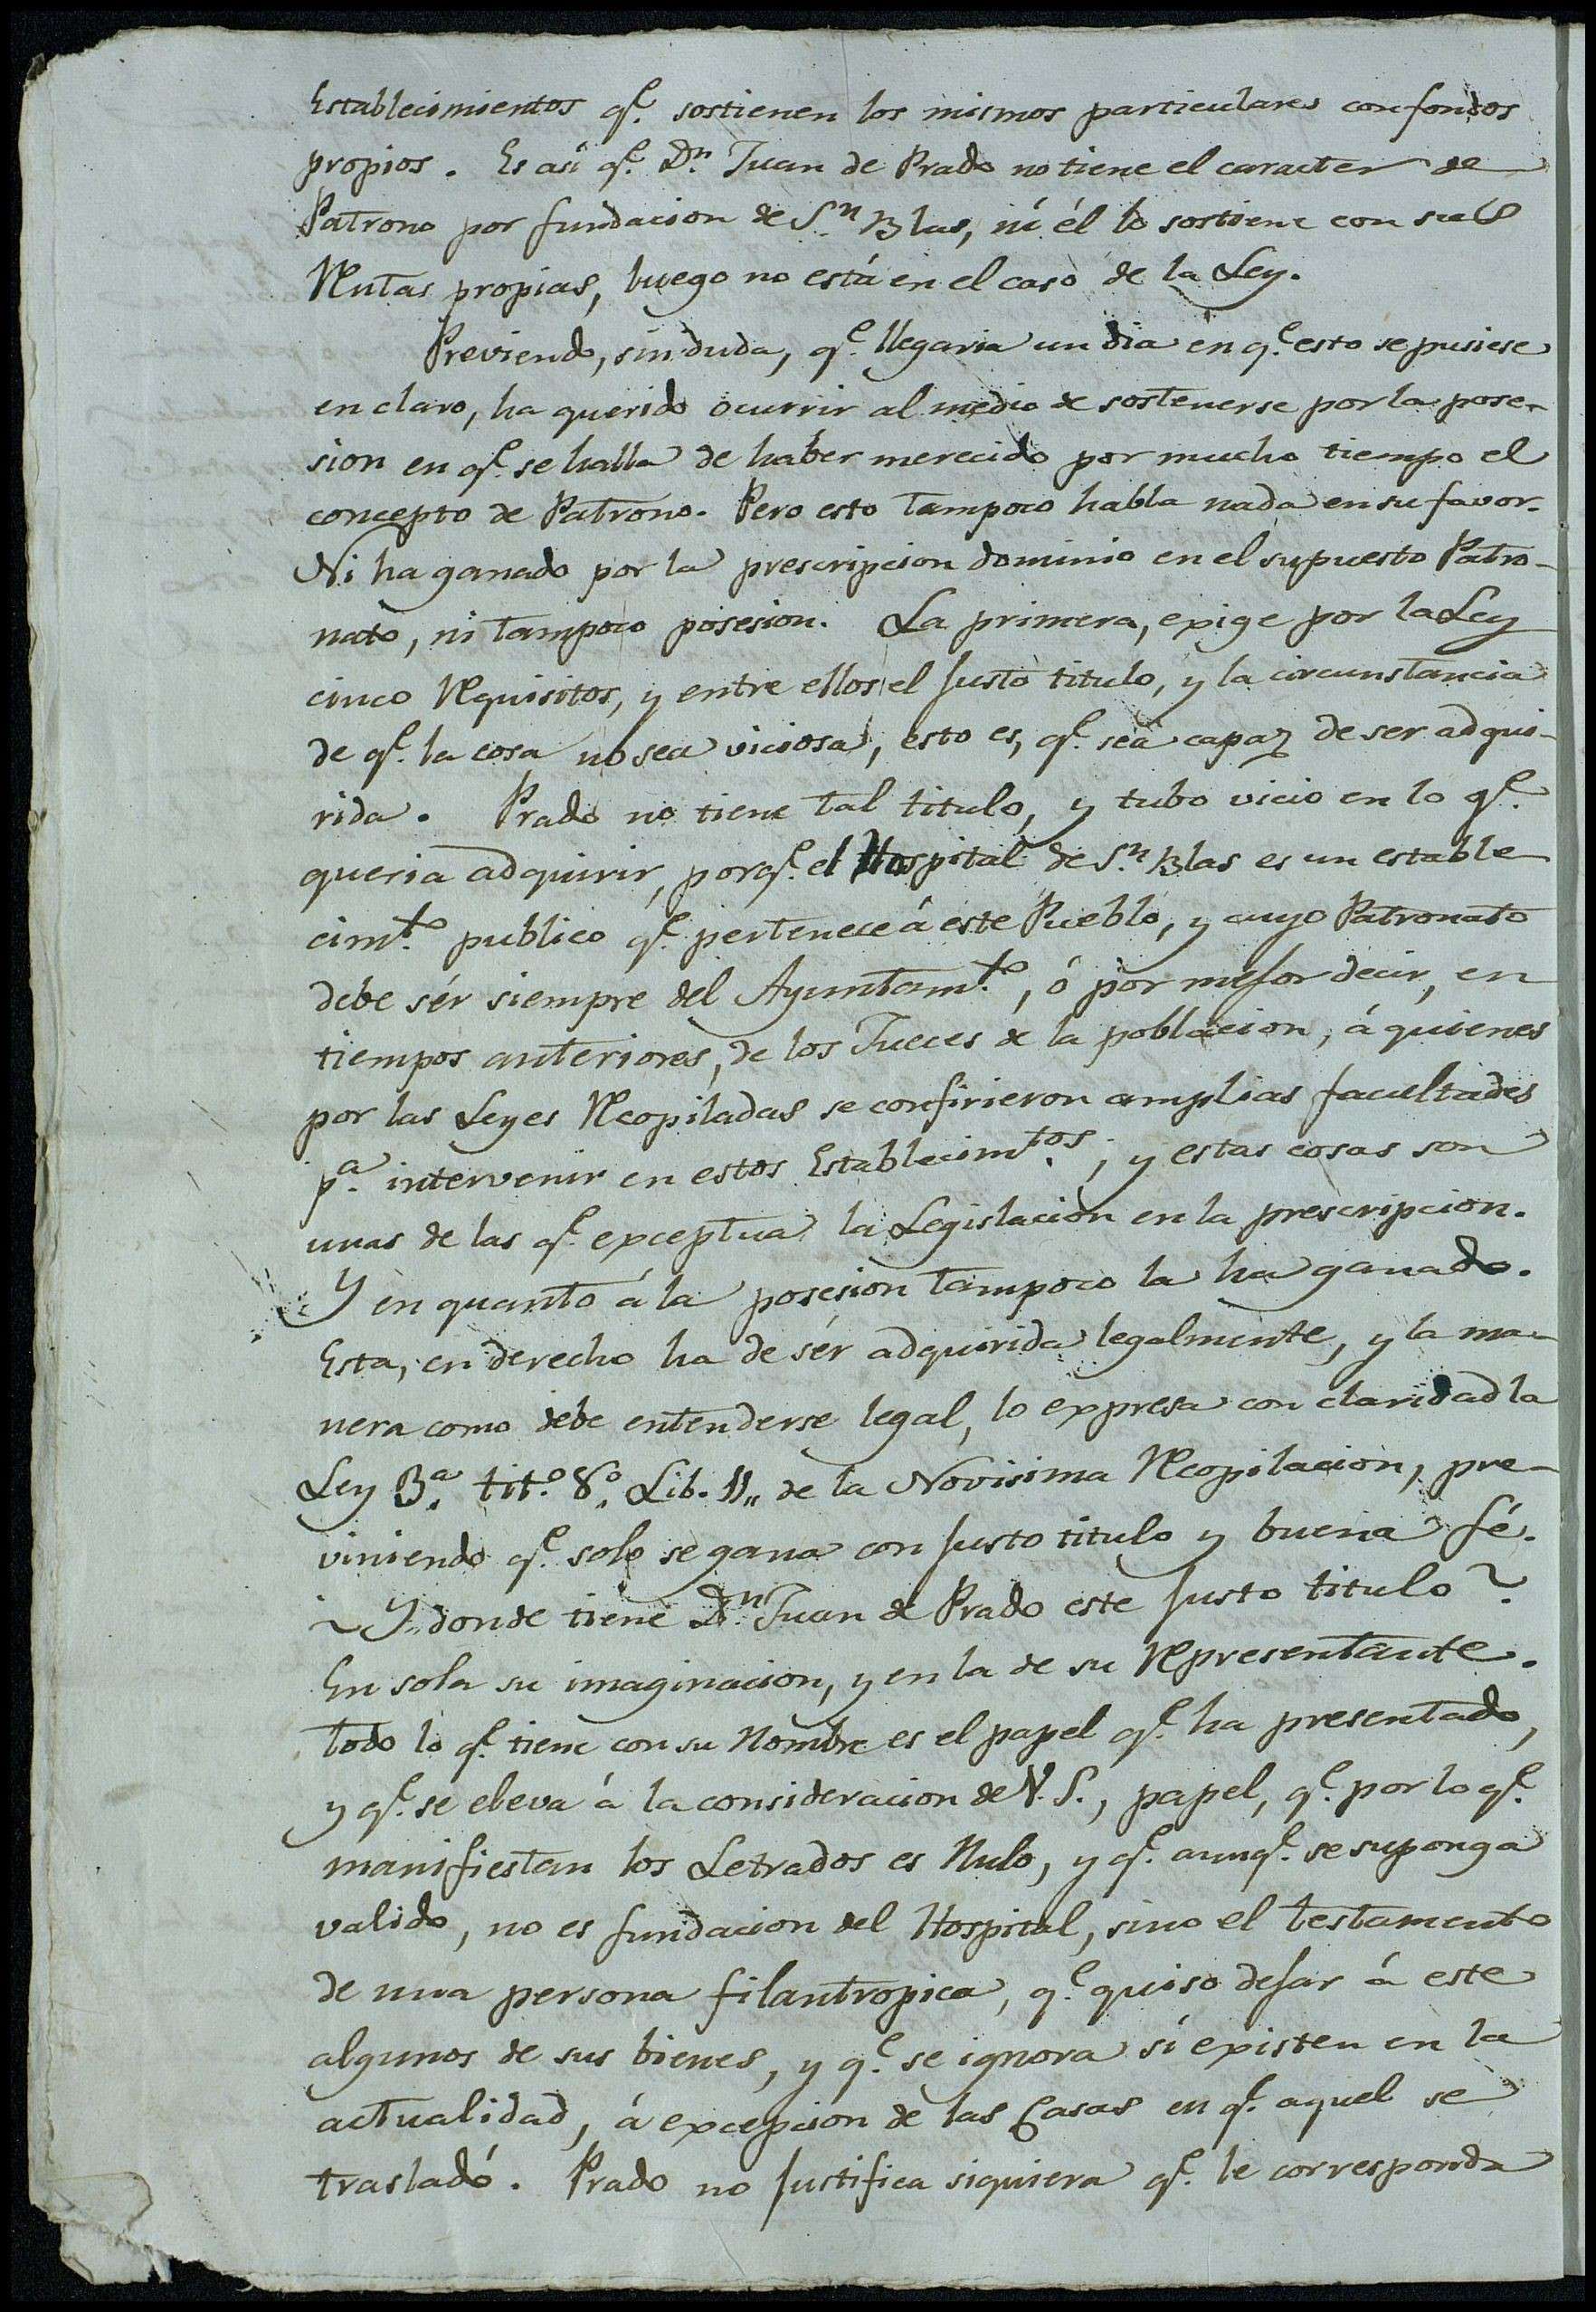 Establecimientos q.e sostienen los mismos particulares con fondos
propios. Es asi q.e D.n Juan de Prado no tiene el caracter de
Patrono por fundacion de S.n Blas, ni él lo sostiene con sus
Rentas propias, luego no está en el caso de la Ley.
Previendo, sin duda, q.e llegaria un dia en q.e esto se pusiese
en claro, ha querido ocurrir al medio de sostenerse por la pose-
sion en q.e se halla de haber merecido por mucho tiempo el
concepto de Patrono. Pero esto tampoco habla nada en su favor.
Ni ha ganado por la prescripcion dominio en el supuesto Patro-
nato, ni tampoco posesion. La primera, exige por la Ley
cinco Requisitos, y entre ellos el justo titulo, y la circunstancia
de q.e la cosa no sea viciosa, esto es, q.e sea capaz de ser adqui-
rida. Prado no tiene tal titulo, y tubo vicio en lo q.e
queria adquirir, porq.e el Hospital de S.n Blas es un estable-
cim.to publico q.e pertenece á este Pueblo, y cuyo Patronato
debe sér siempre del Ayuntam.to, ó por mejor decir, en
tiempos anteriores, de los Jueces de la poblacion, á quienes
por las Leyes Recopiladas se confirieron amplias facultades
p.a intervenir en estos Establecim.tos; y estas cosas son
unas de las q.e exceptua la Legislacion en la prescripcion.
Y en quanto á la posesion tampoco la ha ganado.
Esta, en derecho ha de sér adquirida legalmente, y la ma-
nera como debe entenderse legal, lo expresa con claridad la
Ley 3.a tit.o 8.o Lib. 11,, de la Novisima Recopilacion, pre-
viniendo q.e solo se gana con justo titulo y buena fé.
¿Y donde tiene D.n Juan de Prado este justo titulo?
En sola su imaginacion, y en la de su Representante.
Todo lo q.e tiene con su Nombre es el papel q.e ha presentado,
y q.e se eleva á la consideracion de V.S., papel, q.e por lo q.e
manifiestan los Letrados es Nulo, y q.e aunq.e se suponga
valido, no es fundacion del Hospital, sino el testamento
de una persona filantropica, q.e quiso dejar á este
algunos de sus bienes, y q.e se ignora si existen en la
actualidad, á excepcion de las Casas en q.e aquel se
trasladó. Prado no justifica siquiera q.e le corresponda